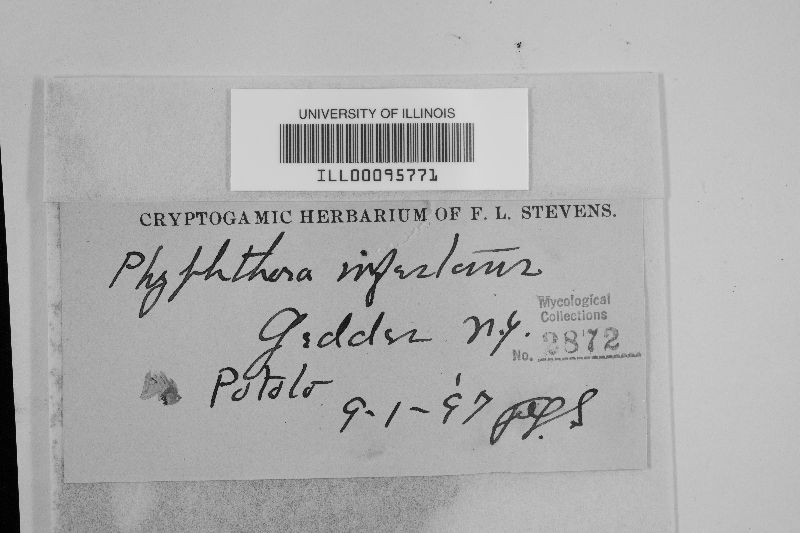 UNIVERSITY OF ILLINOIS
ILL00095771
CRYPTOGAMIC HERBARIUM OF F. L. STEVENS.
Phyphthora infestans
Geddes N.Y.
Mycological
Collections
No. 2872
Potato
9-1-'97 FLS